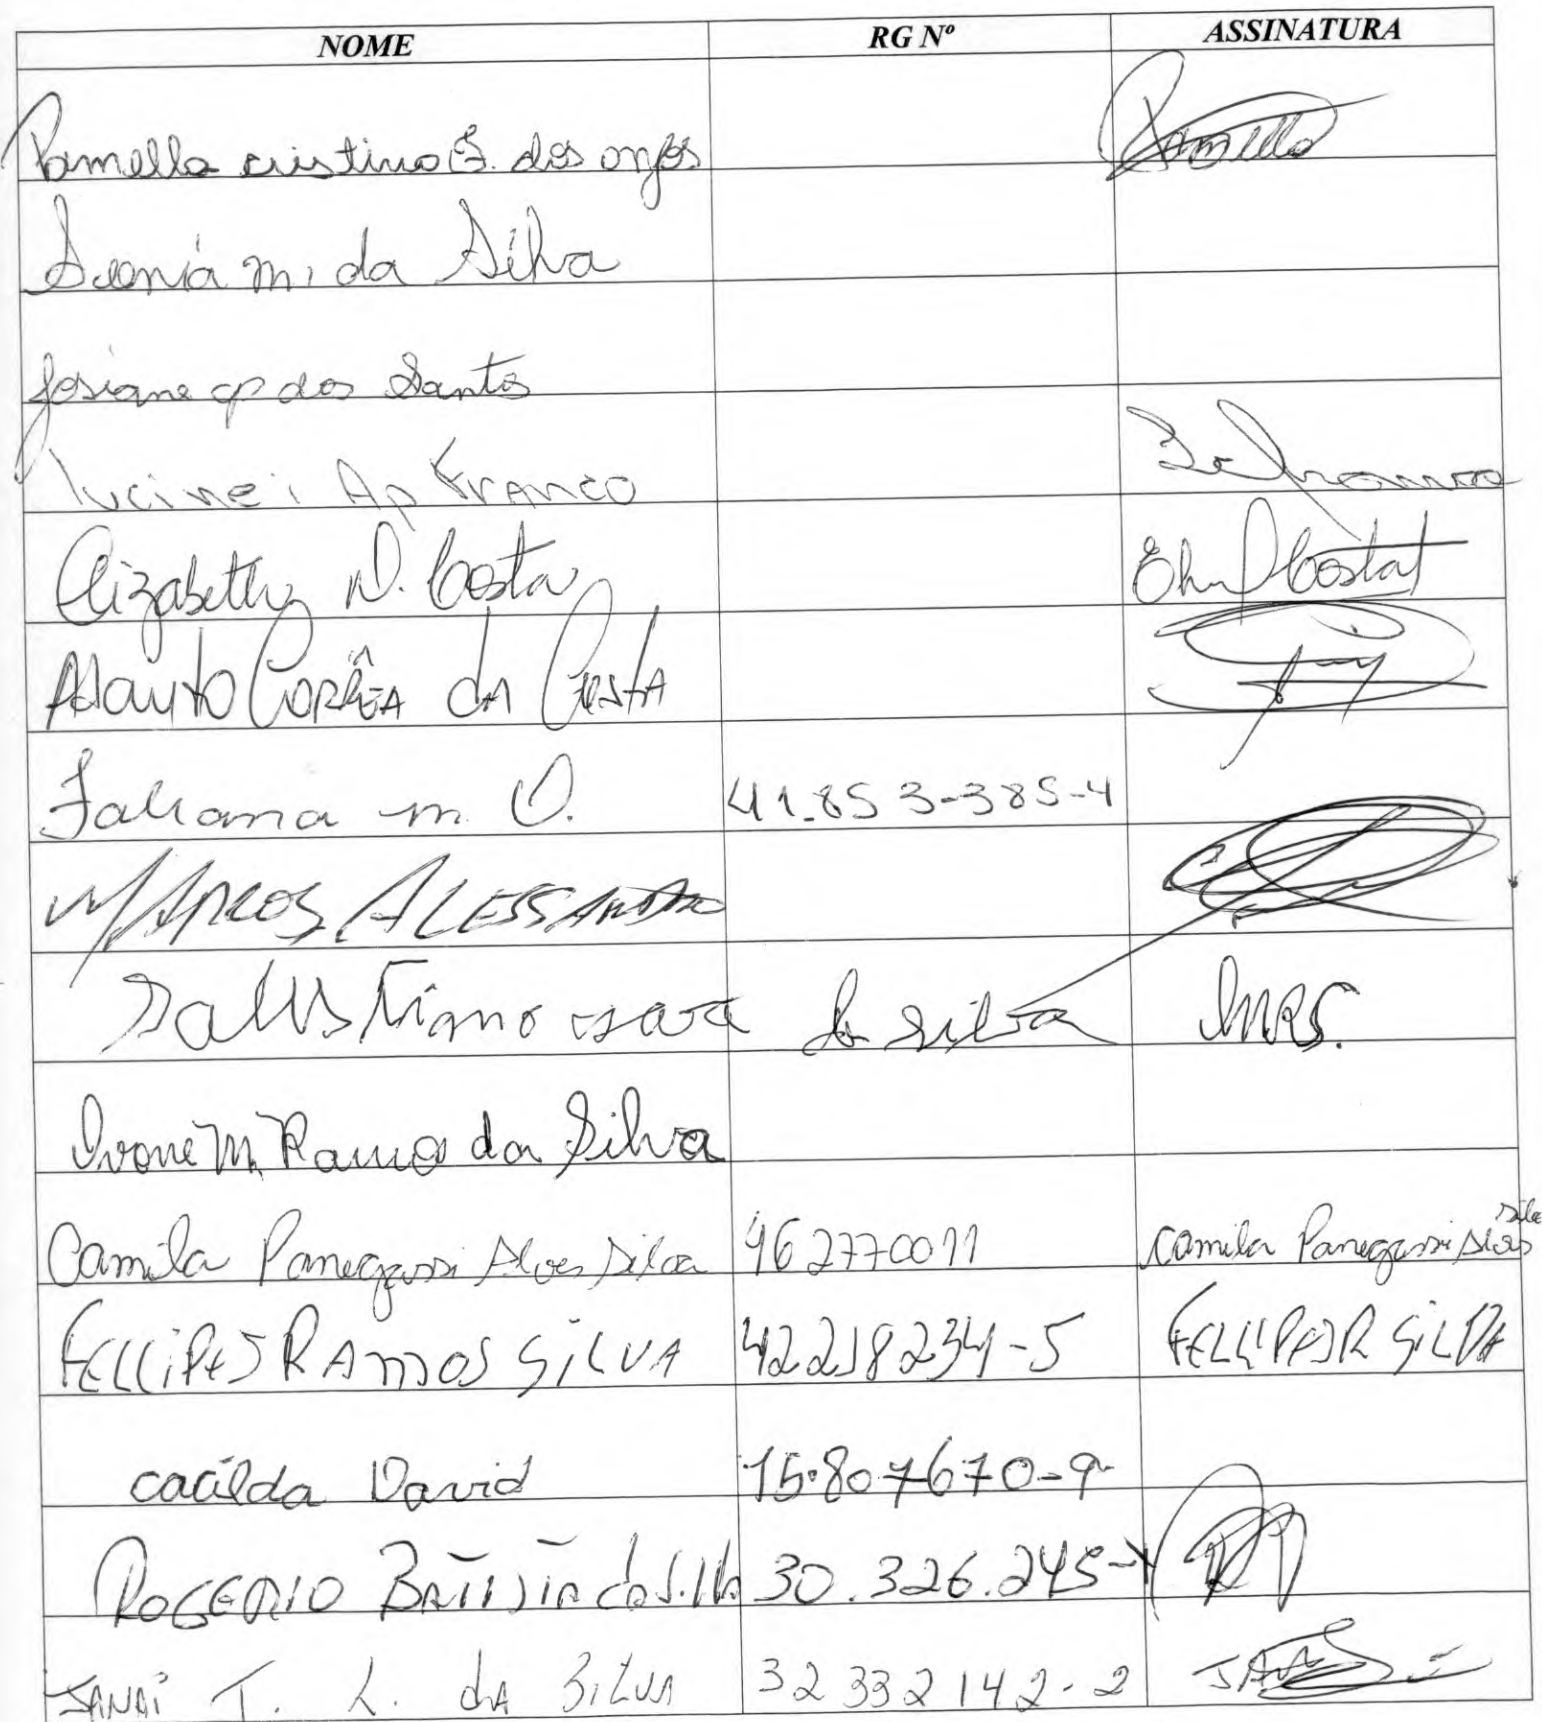 NOME RG Nº ASSINATURA
Pamella cristina S. dos anjos Pamella
Sonia m. da Silva
Josiane ap dos Santos
lucinei Ap Franco
Elizabethy N. Costa Costa
Adauto CORRÊA dA CostA
m. O. 41.853-385-4
MARCOS ALESSANDRO
da silva
Ivone M. Ramos da Silva
Camila Panegassi Alves Silva 462770011 Camila Panegassi Alves Silva
FELLIPES RAMOS SILVA 42218234-5 FELLIPES R SILVA
cacilda David 15.807670-9
ROGERIO BATISTA da Silva 30.326.245-X
JANAi T. L. dA SILVA 32 332 142-2